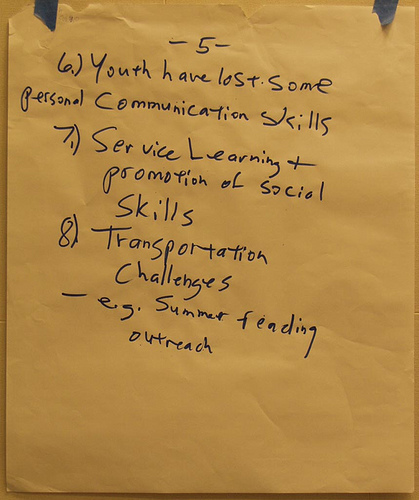 - 5 -
6.) Youth have lost some
personal Communication skills
7.) Service Learning +
promotion of social
Skills
8) Transportation
Challenges
- e.g. Summer feeding
outreach